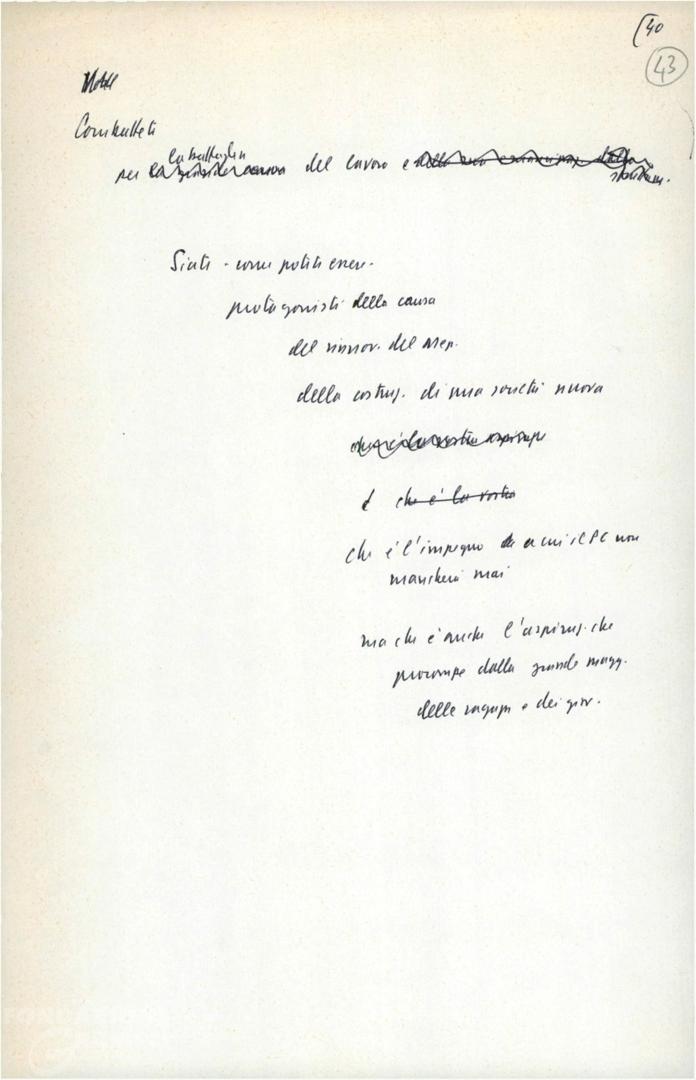 (40
43
Combattete
la battaglia
per del lavoro e
Siate - come potete essere -
protagonisti della causa
del rinnov. del
della costruz. di una società nuova
e che è la vostra
che è l'impegno a cui il PC non
mancherà mai
ma che è anche l'aspiraz. che
prorompe dalla grande magg.
delle ragazze e dei giov.